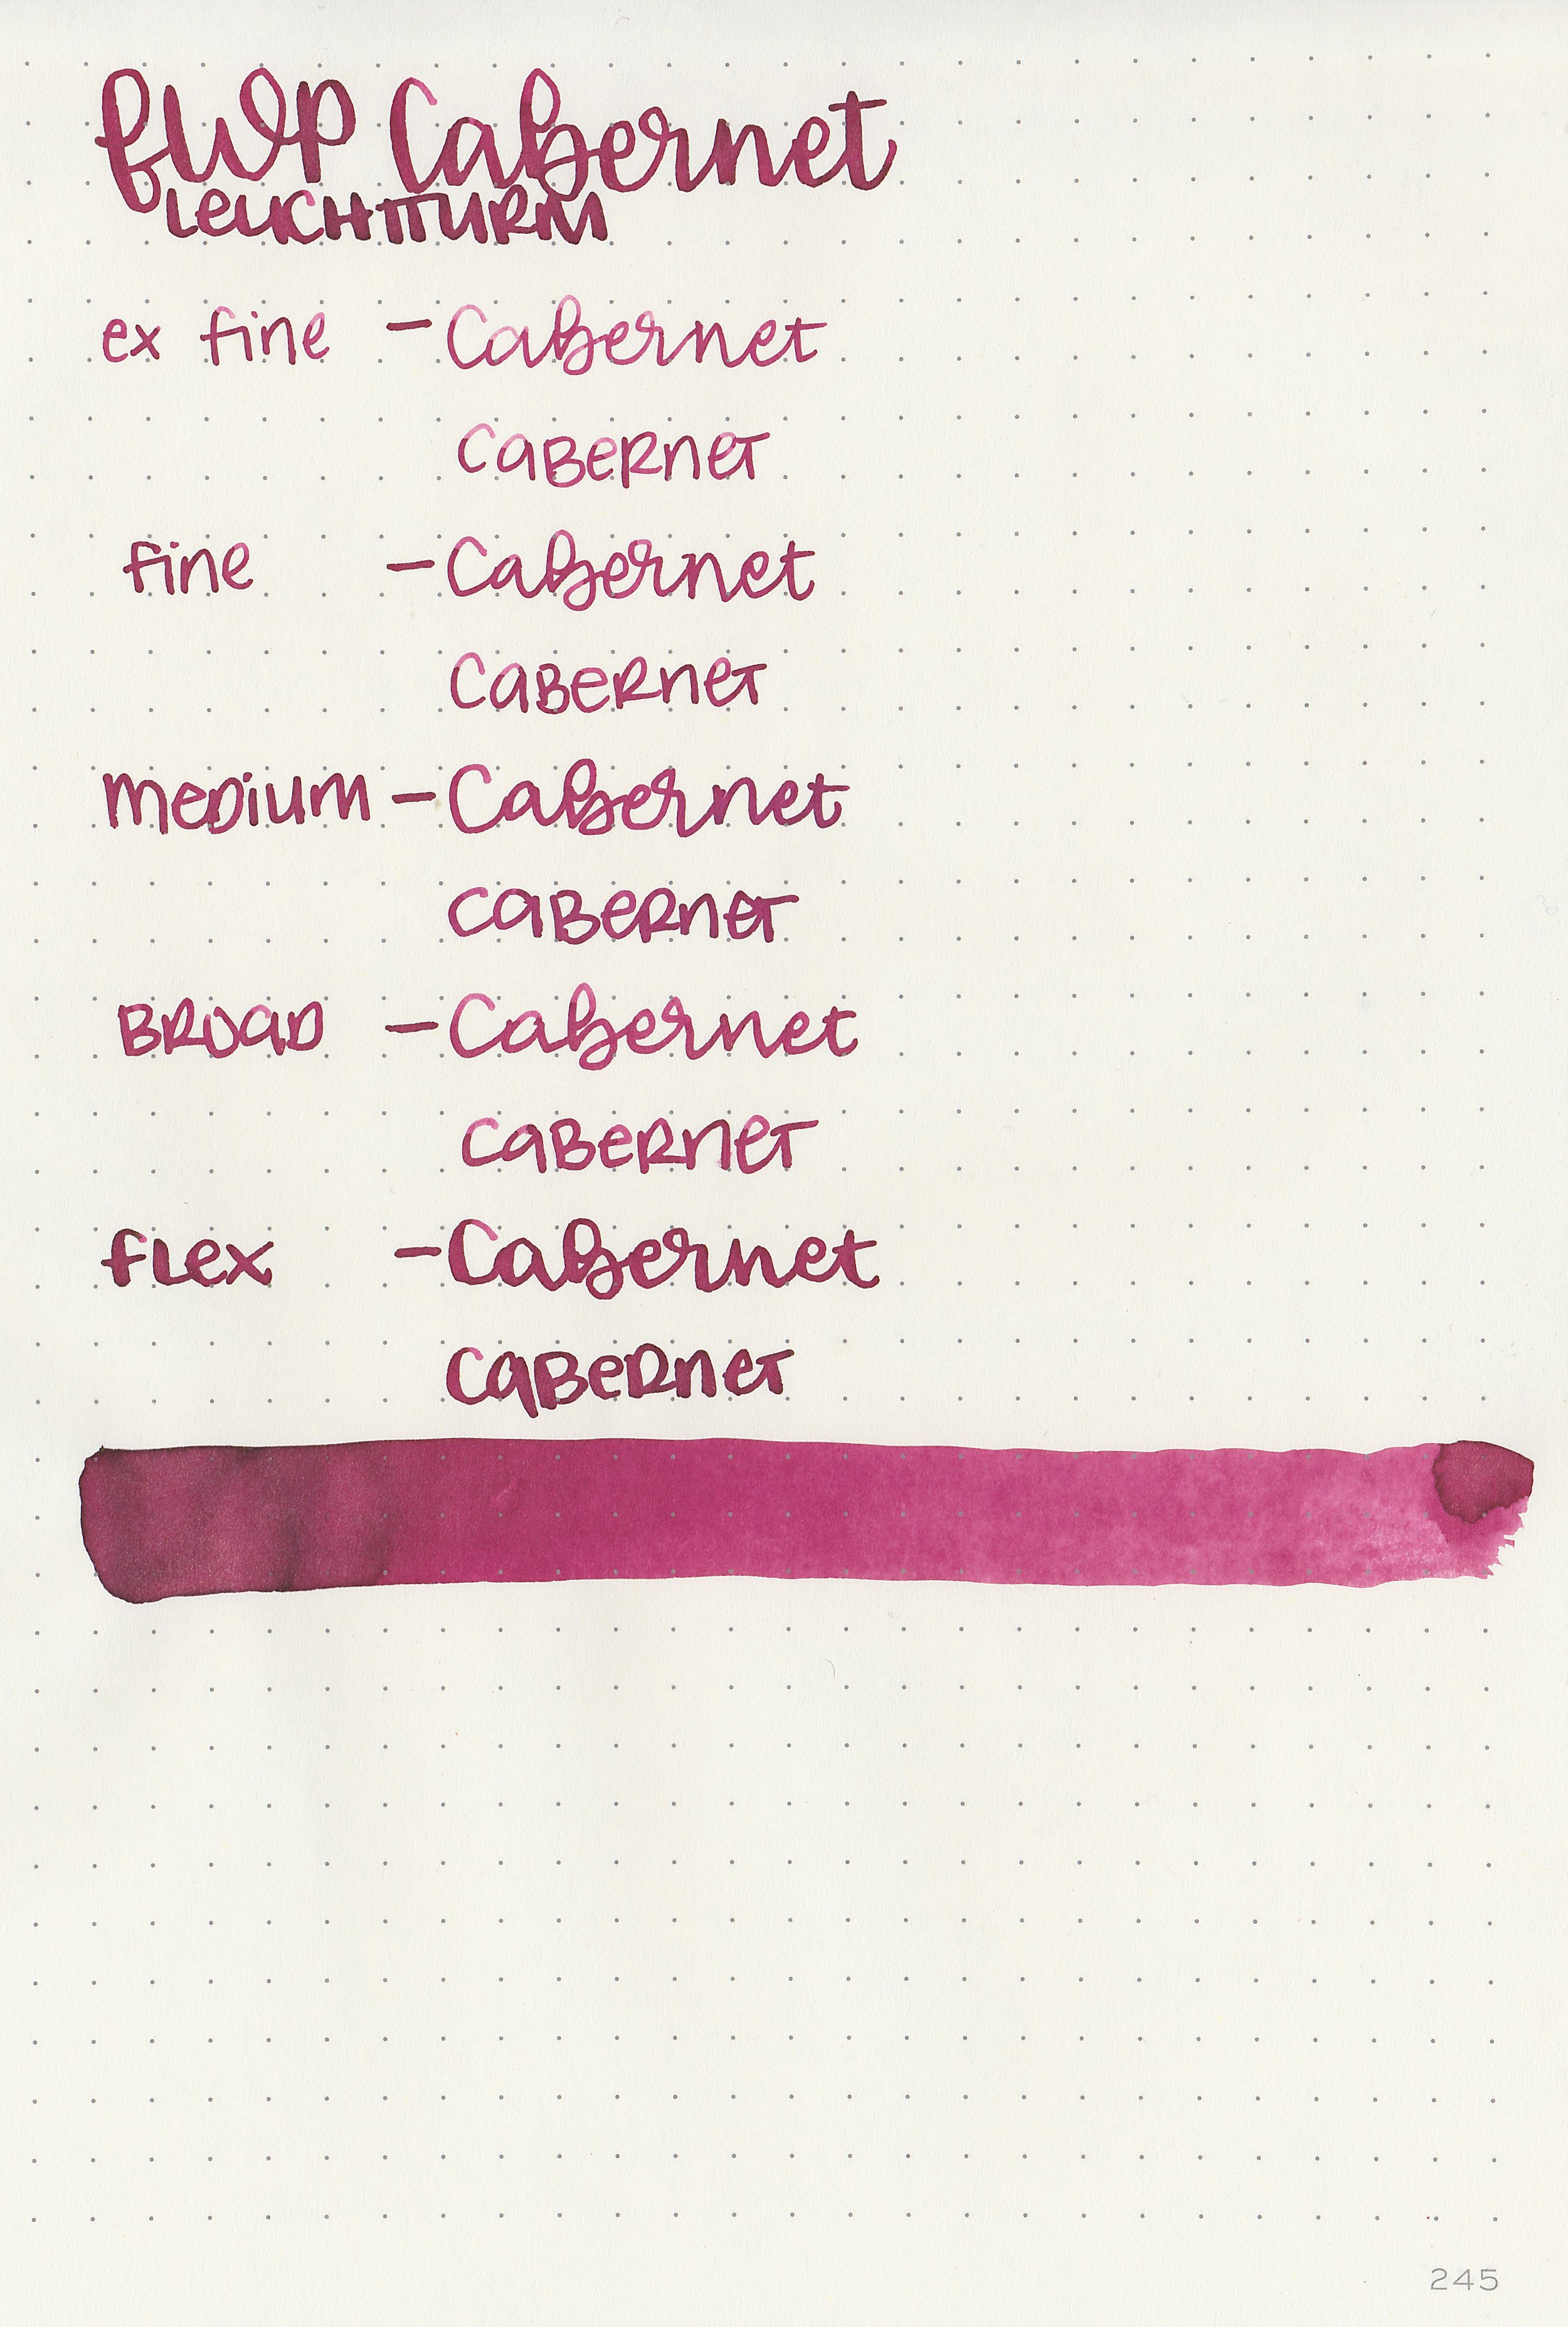 fwp Cabernet
LEUCHTTURM
ex fine - Cabernet
CABERNET
fine - Cabernet
CABERNET
MEDIUM - Cabernet
CABERNET
BROAD - Cabernet
CABERNET
FLEX - Cabernet
CABERNET
245